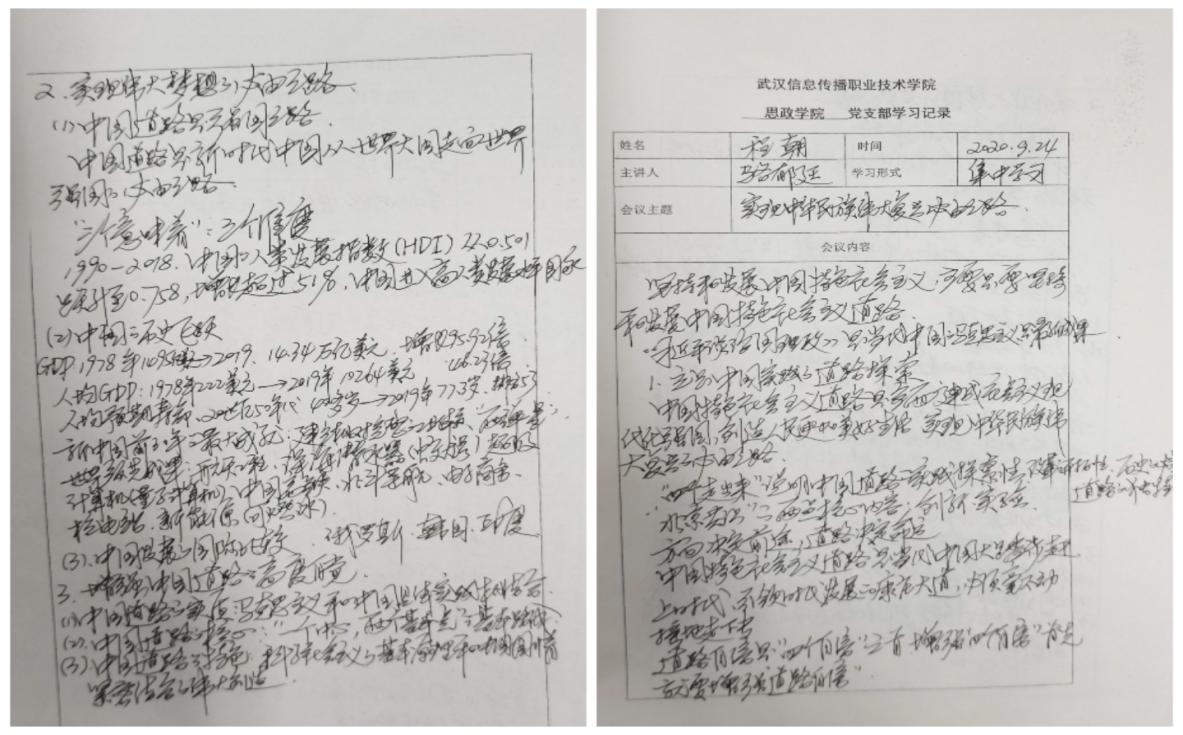 2. 实现伟大梦想的必由之路
(1) 中国道路是强国之路
中国道路是新时代中国从世界大国走向世界
强国的必由之路
"三个意味着":三个维度
1990-2018, 中国的人类发展指数(HDI)从0.501
提升至0.758, 增长超过51%, 中国进入高人类发展水平国家
(2) 中国的历史飞跃
GDP 1978年 → 2019. 14.34万亿美元, 增长95.92倍
人均GDP:1978年222美元 → 2019年10264美元 46.23倍
人均预期寿命, 20世纪50年代 40多岁 → 2019年77.3岁
新中国前30年的最大成就:建
世界领先成果:航天工程, 探
计算机(量子计算机), 中国高铁, 北斗导航, 电子商务
核电站, 新能源(可燃冰)
(3). 中国发展的国际比较 俄罗斯, 韩国, 印度
3. 增强中国道路的高度自觉
(1) 中国道路的实质:马克思主义和中国具体实践的结合
(2). 中国道路的核心:"一个中心, 两个基本点"的基本路线
(3) 中国道路的特色, 科学社会主义的基本原理和中国国情
紧密结合的伟大创造
武汉信息传播职业技术学院
思政学院 党支部学习记录
姓名 程朝 时间 2020.9.24
主讲人 学习形式 集中学习
会议主题 实现中华民族伟大复兴的必由之路.
会议内容
坚持和发展中国特色社会主义, 首要是要坚持
和发展中国特色社会主义道路.
《习近平谈治国理政》是当代中国马克思主义最新成果
1. 立足中国实践的道路探索
中国特色社会主义道路是全面建成社会主义现
代化强国, 创造人民更加美好生活 实现中华民族伟
大复兴的必由之路.
"四个走出来"说明中国道路的实践探索性,
"北京共识"的两点核心内容, 创新 实验
方向决定前途, 道路决定命运
中国特色社会主义道路是当代中国大踏步赶
上时代, 引领时代发展的康庄大道, 必须毫不动
摇地走下去
道路自信是"四个自信"之首 增强"四个自信"首先
就要增强"道路自信"